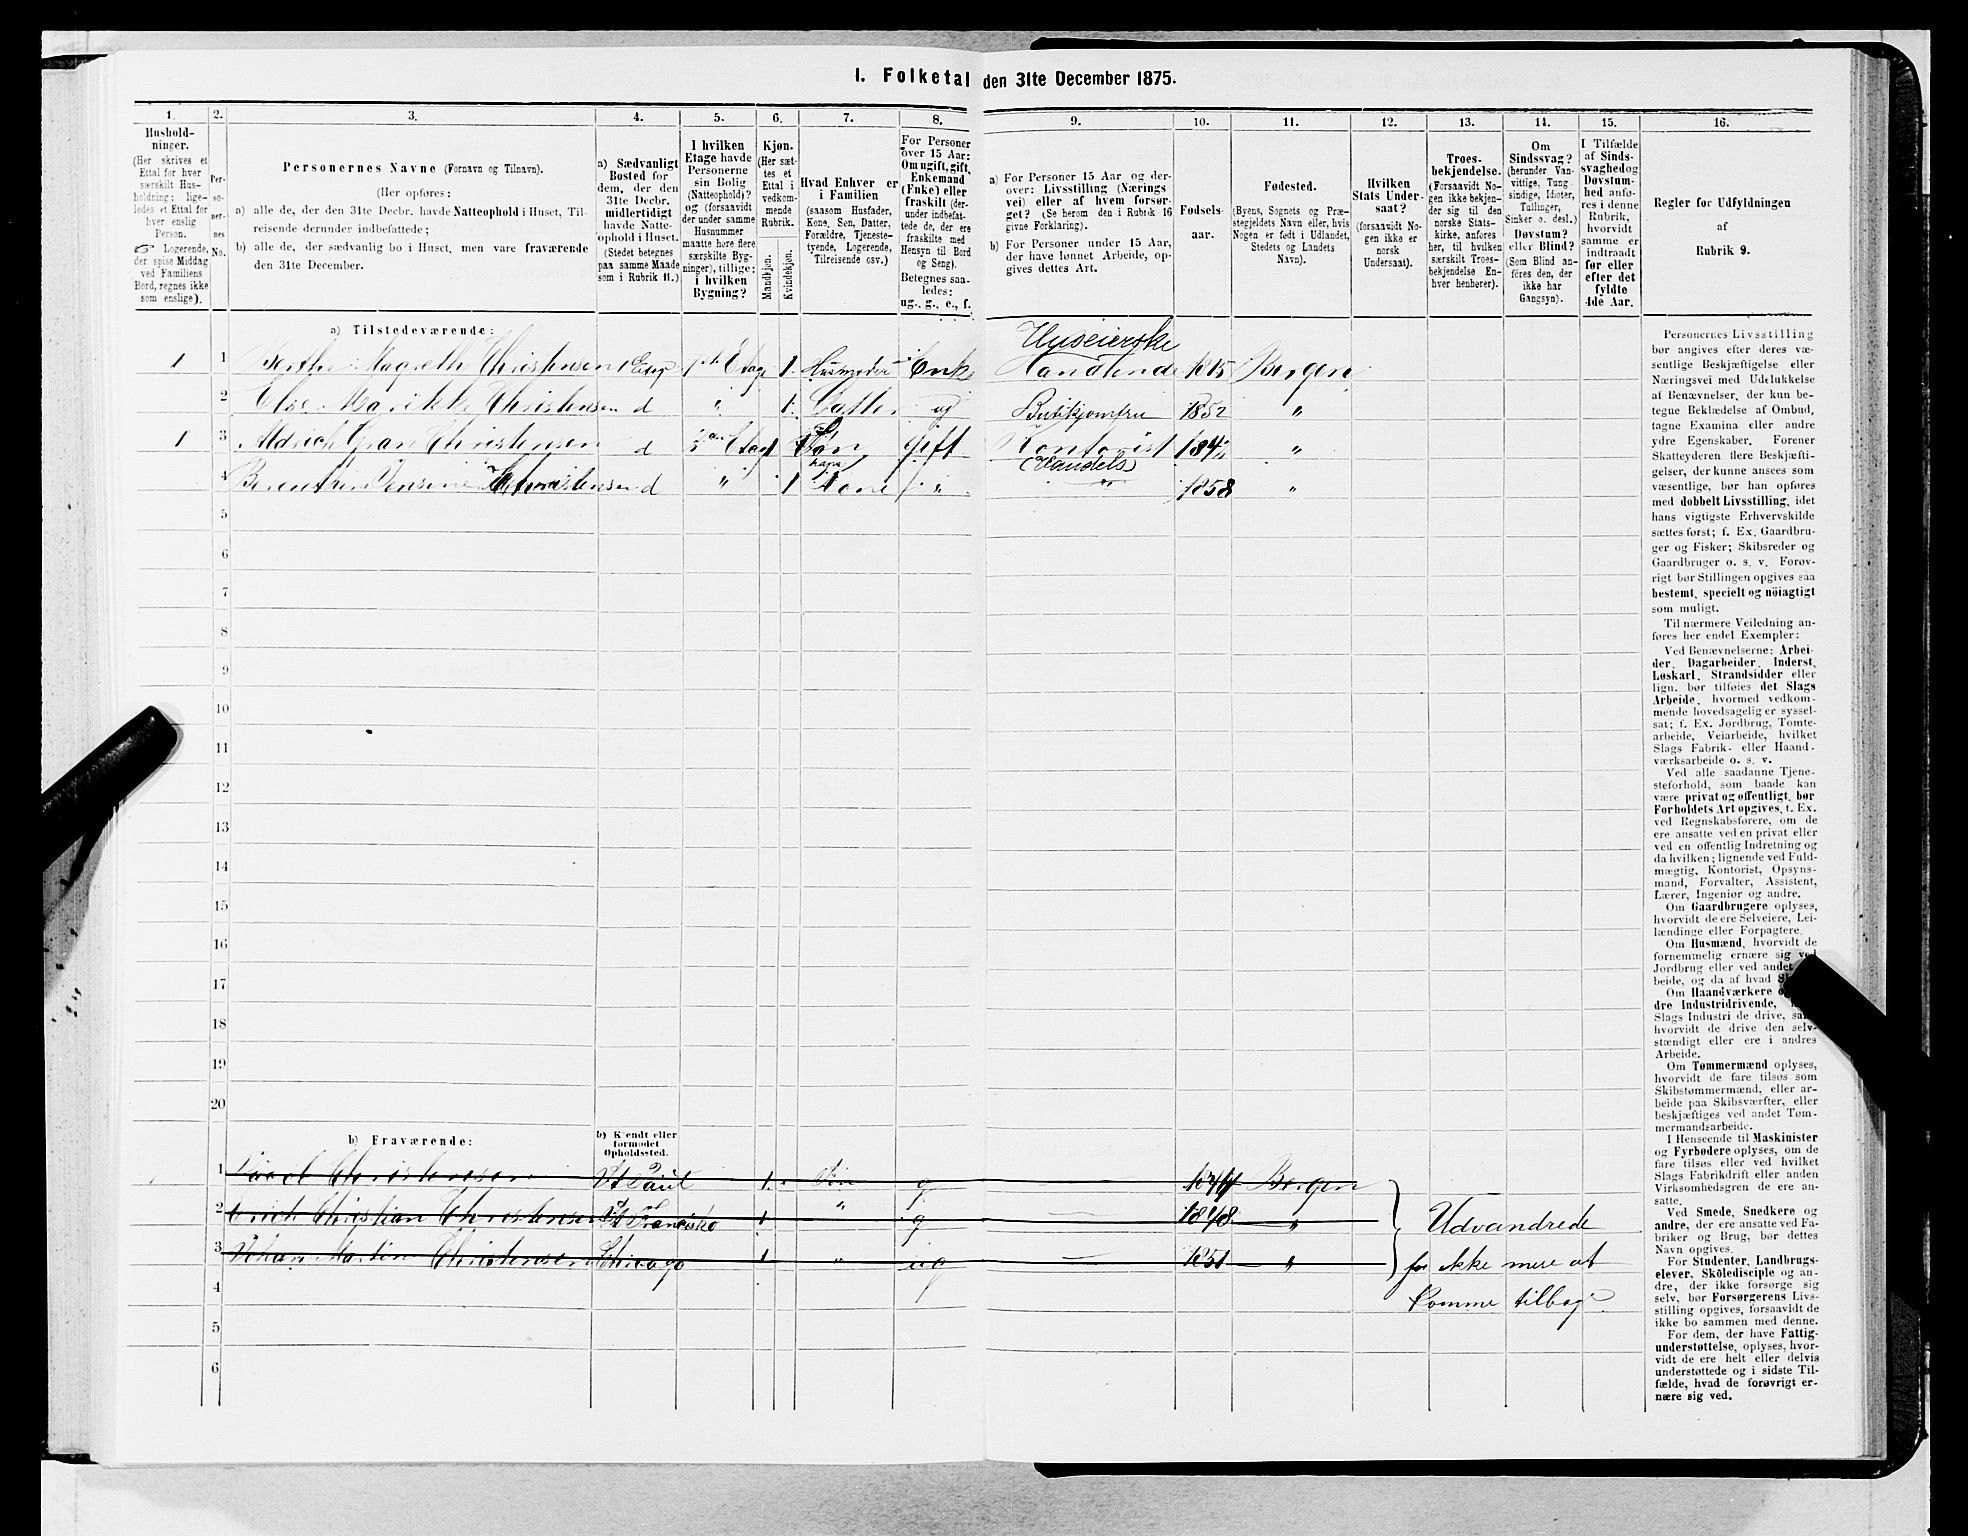 I. Folketal den 31te December 1875.
1. 2. 3. 4. 5. 6. 7. 8. 9. 10. 11. 12. 13. 14. 15. 16.
Hushold-
ninger.
(Her skrives et
Ettal for hver
særskilt Hus-
holdning; lige-
ledes et Ettal for
hver enslig
Person.
Logerende,
der spise Middag
ved Familiens
Bord, regnes ikke
som enslige).
Per-
so-
ner-
nes
No.
Personernes Navne (Fornavn og Tilnavn).
(Her opføres:
a) alle de, der den 31te Decbr. havde Natteophold i Huset, Til-
reisende derunder indbefattede;
b) alle de, der sædvanlig bo i Huset, men vare fraværende
den 31te December.
a) Sædvanligt
Bosted for
dem, der den
31te Decbr.
midlertidigt
havde Natte-
ophold i Huset.
(Stedet betegnes
paa samme Maade
som i Rubrik 11.)
I hvilken
Etage havde
Personerne
sin Bolig
(Natteophold)?
og (forsaavidt
der under samme
Husnummer
maatte høre flere
særskilte Byg-
ninger), tillige:
i hvilken
Bygning?
Kjøn.
(Her sæt-
tes et
Ettal i
vedkom-
mende
Rubrik.
Mandkjøn.
Kvindekjøn.
Hvad Enhver er
i Familien
(saasom Husfader,
Kone, Søn, Datter,
Forældre, Tjeneste-
tyende, Logerende,
Tilreisende osv.)
For Personer
over 15 Aar:
Om ugift, gift,
Enkemand
(Enke) eller
fraskilt (der-
under indbefat-
tede de, der ere
fraskilte med
Hensyn til Bord
og Seng).
Betegnes saa-
ledes:
ug., g., e., f.
a) For Personer 15 Aar og der-
over: Livsstilling (Nærings
vei) eller af hvem forsør-
get? (Se herom den i Rubrik 16
givne Forklaring).
b) For Personer under 15 Aar,
der have lønnet Arbeide, op-
gives dettes Art.
Fødsels-
aar.
Fødested.
(Byens, Sognets og Præ-
stegjeldets Navn eller, hvis
Nogen er født i Udlandet,
Stedets og Landets
Navn).
Hvilken
Stats Under-
saat?
(forsaavidt No-
gen ikke er
norsk
Undersaat).
Troes-
bekjendelse.
(Forsaavidt No-
gen ikke bekjen-
der sig til den
norske Stats-
kirke, anføres
her, til hvilken
særskilt Troes-
bekjendelse En-
hver henhører).
Om
Sindssvag?
(herunder Van-
vittige, Tung
sindige, Idioter,
Tullinger,
Sinker o. desl.)
Døvstum?
eller Blind?
(Som Blind an-
føres den, der
ikke har
Gangsyn).
I Tilfælde
af Sinds-
svaghed og
Døvstum-
hed anfø-
res i denne
Rubrik,
hvorvidt
samme er
indtraadt
før eller
efter det
fyldte
4de Aar.
Regler for Udfyldningen
af
Rubrik 9.
a) Tilstedeværende:
1 1 Berthe Magrethe Christensen 1 Etage 1 Husmoder Enke Huseierske Handlende 1815 Bergen
2 Else Marikke Christensen d " 1 Datter ug Butikjomfru 1852 "
1 3 Aldrich Gran Christensen d Etage 1 Søn gift Kontorist (Handels) 1847 "
4 Christensen d " 1 hans Kone " " 1858 "
5
6
7
8
9
10
11
12
13
14
15
16
17
18
19
20
b) Fraværende:
b) Kjendt eller
formodet
Opholdssted.
1 Christensen St Paul 1 Søn g 1844 Bergen
2 Erich Christian Christensen St Francisko 1 " g 1848 " Udvandrede
3 Johan Martin Christensen Chicago 1 " ug 1851 " for ikke mere at
4 komme tilbage.
5
6
Personernes Livsstilling
bør angives efter deres væ-
sentlige Beskjæftigelse eller
Næringsvei med Udelukkelse
af Benævnelser, der kun be-
tegne Beklædelse af Ombud,
tagne Examina eller andre
ydre Egenskaber. Forener
Skatteyderen flere Beskjæfti-
gelser, der kunne ansees som
væsentlige, bør han opføres
med dobbelt Livsstilling, idet
hans vigtigste Erhvervskilde
sættes først; f. Ex. Gaardbru-
ger og Fisker; Skibsreder og
Gaardbruger o. s. v. Forøv-
rigt bør Stillingen opgives saa
bestemt, specielt og nöiagtigt
som muligt.
Til nærmere Veiledning an-
føres her endel Exempler:
Ved Benævnelserne: Arbei-
der, Dagarbeider, Inderst,
Løskarl, Strandsidder eller
lign. bør tilføies det Slags
Arbeide, hvormed vedkom-
mende hovedsagelig er syssel-
sat; f. Ex. Jordbrug, Tomte-
arbeide, Veiarbeide, hvilket
Slags Fabrik- eller Haand-
værksarbeide o. s. v.
Ved alle saadanne Tjene-
steforhold, som baade kan
være privat og offentligt, bør
Forholdets Art opgives, t. Ex.
ved Regnskabsførere, om de
ere ansatte ved en privat eller
ved en offentlig Indretning og
da hvilken; lignende ved Fuld-
mægtig, Kontorist, Opsyns-
mand, Forvalter, Assistent,
Lærer, Ingeniør og andre.
Om Gaardbrugere oplyses,
hvorvidt de ere Selveiere, Lei-
lændinge eller Forpagtere.
Om Husmænd, hvorvidt de
fornemmelig ernære sig ved
Jordbrug eller ved andet
beide, og da af hvad
Om Haandværkere
dre Industridrivende,
Slags Industri de drive, sam
hvorvidt de drive den selv-
stændigt eller ere i andres
Arbeide.
Om Tømmermænd oplyses,
hvorvidt de fare tilsøs som
Skibstømmermænd, eller ar-
beide paa Skibsværfter, eller
beskjæftiges ved andet Tøm-
mermandsarbeide.
I Henseende til Maskinister
og Fyrbødere oplyses, om de
fare tilsøs eller ved hvilket
Slags Fabrikdrift eller anden
Virksomhedsgren de ere an-
satte.
Ved Smede, Snedkere og
andre, der ere ansatte ved Fa-
briker og Brug, bør dettes
Navn opgives.
For Studenter, Landbrugs-
elever, Skölediscipel og an-
dre, der ikke forsørge sig
selv, bør Forsørgerens Livs-
stilling opgives, forsaavidt de
ikke bo sammen med denne.
For dem, der have Fattig-
understøttelse, oplyses, hvor-
vidt de ere helt eller delvis
understøttede og i sidste Til-
fælde, hvad de forøvrigt er-
nære sig ved.